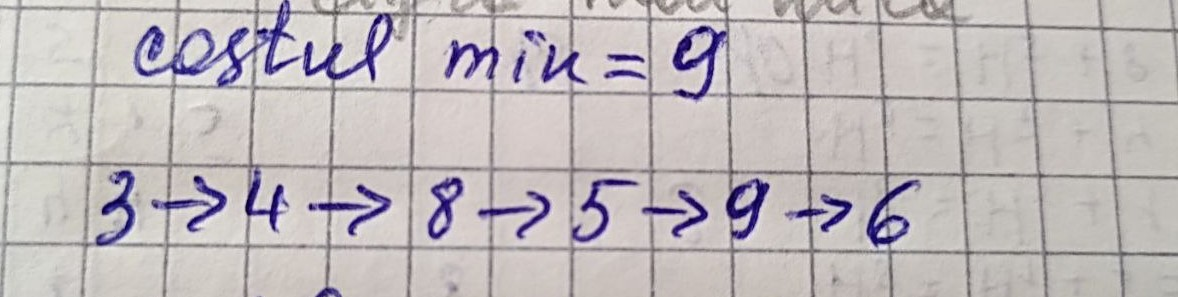 costul min = 9
3 → 4 → 8 → 5 → 9 → 6